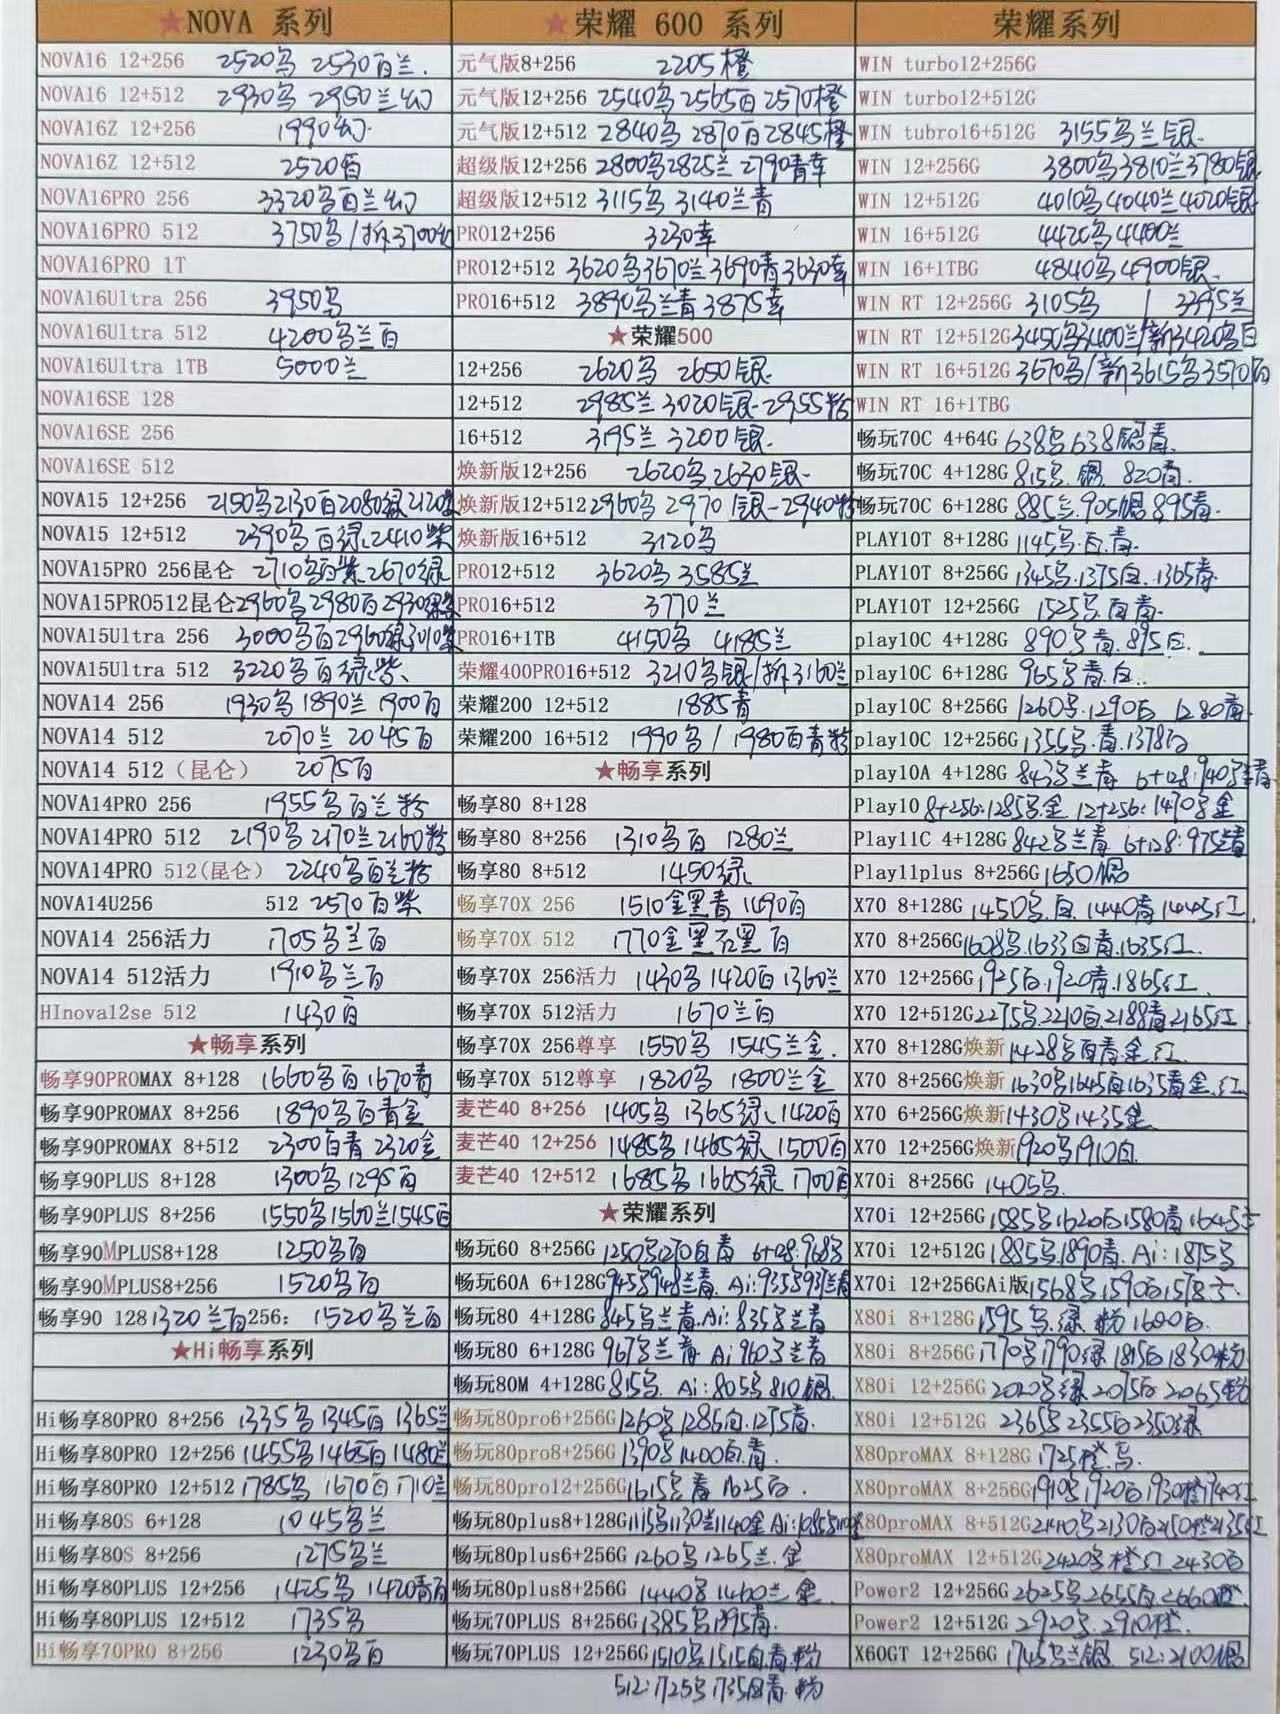 ★NOVA 系列
NOVA16 12+256 2520乌 2530白兰.
NOVA16 12+512 2930乌 2950兰幻
NOVA16Z 12+256 1990幻
NOVA16Z 12+512 2520白
NOVA16PRO 256 3320乌白兰幻
NOVA16PRO 512 3750乌/拆3700幻
NOVA16PRO 1T
NOVA16Ultra 256 3950乌
NOVA16Ultra 512 4200乌兰白
NOVA16Ultra 1TB 5000兰
NOVA16SE 128
NOVA16SE 256
NOVA16SE 512
NOVA15 12+256 2150乌2130白2080绿2120紫
NOVA15 12+512 2390乌白绿2410紫
NOVA15PRO 256昆仑 2710乌白紫2670绿
NOVA15PRO512昆仑2960乌2980白2930绿紫
NOVA15Ultra 256 3000乌白2960绿
NOVA15Ultra 512 3220乌白绿紫
NOVA14 256 1930乌1890兰 1900白
NOVA14 512 2070兰 2045白
NOVA14 512(昆仑) 2075白
NOVA14PRO 256 1955乌白兰粉
NOVA14PRO 512 2190乌2170兰2160粉
NOVA14PRO 512(昆仑) 2240乌白兰粉
NOVA14U256 512 2570白紫
NOVA14 256活力 1705乌兰白
NOVA14 512活力 1910乌兰白
HInova12se 512 1430白
★畅享系列
畅享90PROMAX 8+128 1660乌白1670青
畅享90PROMAX 8+256 1890乌白青金
畅享90PROMAX 8+512 2300白青 2320金
畅享90PLUS 8+128 1300乌1295白
畅享90PLUS 8+256 1550乌1560兰1545白
畅享90MPLUS8+128 1250乌白
畅享90MPLUS8+256 1520乌白
畅享90 128 1320兰白256: 1520乌兰白
★Hi畅享系列
Hi畅享80PRO 8+256 1335乌1345白1365兰
Hi畅享80PRO 12+256 1455乌1465白1480兰
Hi畅享80PRO 12+512 1785乌 1670白1710兰
Hi畅享80S 6+128 1045乌兰
Hi畅享80S 8+256 1275乌兰
Hi畅享80PLUS 12+256 1425乌 1420青白
Hi畅享80PLUS 12+512 1735乌
Hi畅享70PRO 8+256 1230乌白
★荣耀 600 系列
元气版8+256 2205橙
元气版12+256 2540乌2565白2570橙
元气版12+512 2840乌 2870白2845橙
超级版12+256 2800乌2825兰 2790青幸
超级版12+512 3115乌 3140兰青
PRO12+256 3230幸
PRO12+512 3620乌3670兰3690青3630幸
PRO16+512 3890乌兰青3875幸
★荣耀500
12+256 2620乌 2650银
12+512 2985兰3020银 2955粉
16+512 3195兰3200银
焕新版12+256 2620乌2630银
焕新版12+512 2960乌2970银 2940粉
焕新版16+512 3120乌
PRO12+512 3620乌3585兰
PRO16+512 3770兰
PRO16+1TB 4150乌 4185兰
荣耀400PRO16+512 3210乌银/拆3160兰
荣耀200 12+512 1885青
荣耀200 16+512 1990乌/1980白青粉
★畅享系列
畅享80 8+128
畅享80 8+256 1310乌白 1280兰
畅享80 8+512 1450绿
畅享70X 256 1510金黑青 1490白
畅享70X 512 1770金黑 白
畅享70X 256活力 1430乌1420白1360兰
畅享70X 512活力 1670兰白
畅享70X 256尊享 1550乌 1545兰金
畅享70X 512尊享 1820乌 1800兰金
麦芒40 8+256 1405乌 1365绿1420白
麦芒40 12+256 1485乌1465绿1500白
麦芒40 12+512 1685乌1665绿1700白
★荣耀系列
畅玩60 8+256G 1250乌1270白青 6+128:968乌
畅玩60A 6+128G945乌948兰青. Ai:935乌
畅玩80 4+128G845乌兰青.Ai:835乌兰青
畅玩80 6+128G967乌兰青 Ai960乌兰青
畅玩80M 4+128G815乌. Ai:805乌810银
畅玩80pro6+256G1260乌1285白.1275青.
畅玩80pro8+256G1390乌1400白.青.
畅玩80pro12+256G1615乌青 1625白.
畅玩80plus8+128G1115乌1130兰1140金 Ai:1085乌
畅玩80plus6+256G1260乌1265兰.金
畅玩80plus8+256G 1440乌1460兰金.
畅玩70PLUS 8+256G1385乌1395青.
畅玩70PLUS 12+256G1510乌1515白.青.粉
512:1725乌1735白青.粉
荣耀系列
WIN turbo12+256G
WIN turbo12+512G
WIN tubro16+512G 3155乌兰银
WIN 12+256G 3800乌3810兰3780银
WIN 12+512G 4010乌4040兰4020银
WIN 16+512G 4420乌4400兰
WIN 16+1TBG 4840乌4900银
WIN RT 12+256G 3105乌 / 兰
WIN RT 12+512G3450乌3400兰/新3420乌白
WIN RT 16+512G 3670乌/新3615乌3570白
WIN RT 16+1TBG
畅玩70C 4+64G 638乌638银青.
畅玩70C 4+128G 815乌.银 820青.
畅玩70C 6+128G 885兰.905银895青.
PLAY10T 8+128G 1145乌.白.青.
PLAY10T 8+256G 1345乌.1375白.1365青
PLAY10T 12+256G 1525乌.白青.
play10C 4+128G 890乌青.895白.
play10C 6+128G 965乌青.白.
play10C 8+256G 1260乌.1290白 1280青.
play10C 12+256G 1355乌.青.1378白
play10A 4+128G 843乌兰青 6+128:940乌
Play10 8+256:1285乌金 12+256:1470乌金
Play11C 4+128G842乌兰青 6+128:975兰青
Play11plus 8+256G1650银
X70 8+128G 1450乌.白.1440青1445红
X70 8+256G1608乌.1633白青.1635红
X70 12+256G1925白.1920青.1865红.
X70 12+512G2275乌.2210白.2188青2165红
X70 8+128G焕新1428乌白青.金.红
X70 8+256G焕新1630乌1645白1635青金.红
X70 6+256G焕新1430乌1435金
X70 12+256G焕新1920乌1910白
X70i 8+256G 1405乌
X70i 12+256G1585乌1620白1580青
X70i 12+512G1885乌1890青.Ai:1875乌
X70i 12+256GAi版1568乌.1590白
X80i 8+128G1595乌.绿 粉1600白.
X80i 8+256G1770乌1790绿1815白1830粉
X80i 12+256G 2020乌绿2075白2065粉
X80i 12+512G 2365乌2355白2350绿
X80proMAX 8+128G1725橙.乌
X80proMAX 8+256G1910乌1920白1930橙1940红
X80proMAX 8+512G2140乌2130白2150橙2135红
X80proMAX 12+512G2420乌橙红2430白
Power2 12+256G2625乌2655白2660橙
Power2 12+512G2920乌.2910橙.
X60GT 12+256G 1745乌兰银 512:2100银